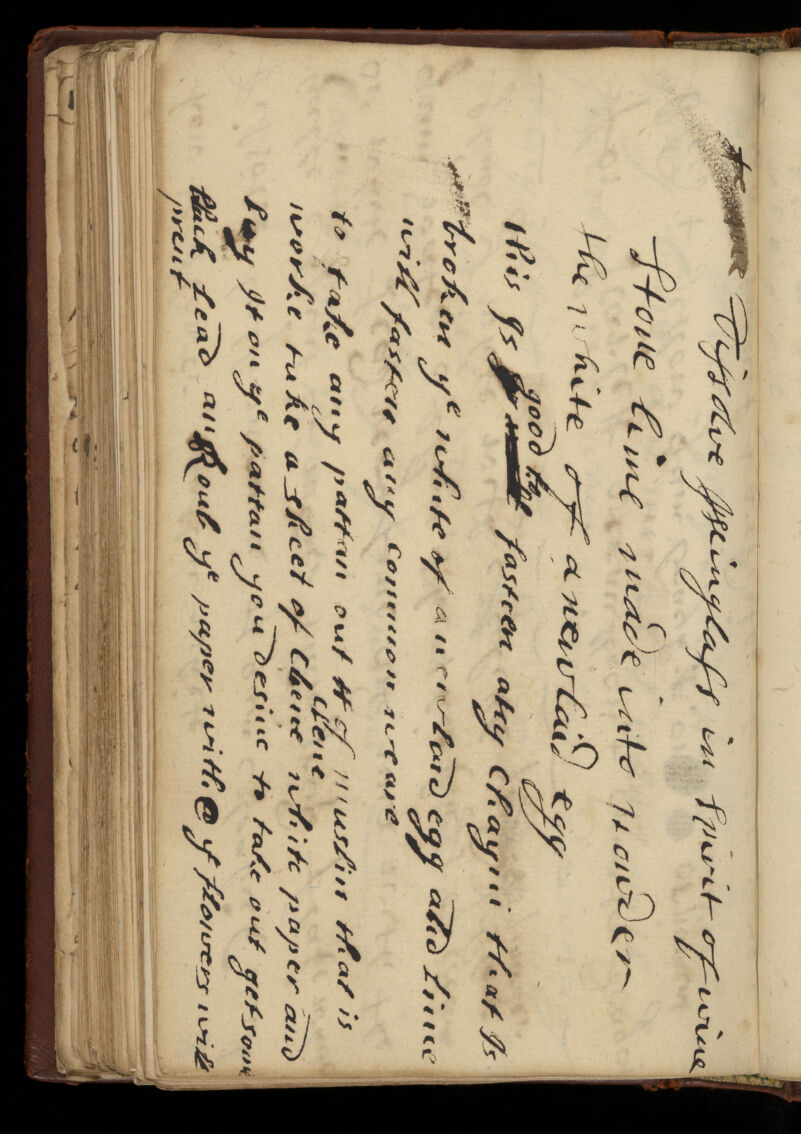 Dissolve Iseinglass in spirit of wine
Stone lime made into Powder
the white of a new laid egg
this Is good to fasten any Chayni that Is
broken ye white of a new laid egg and Lime
will fasten any common weare
to take any pattan out of muslin that is
worke take a sheet of Clene clene white paper and
Lay It on ye pattan you desine to take out get some
black Lead and Roub ye paper with ye flowers will
prent